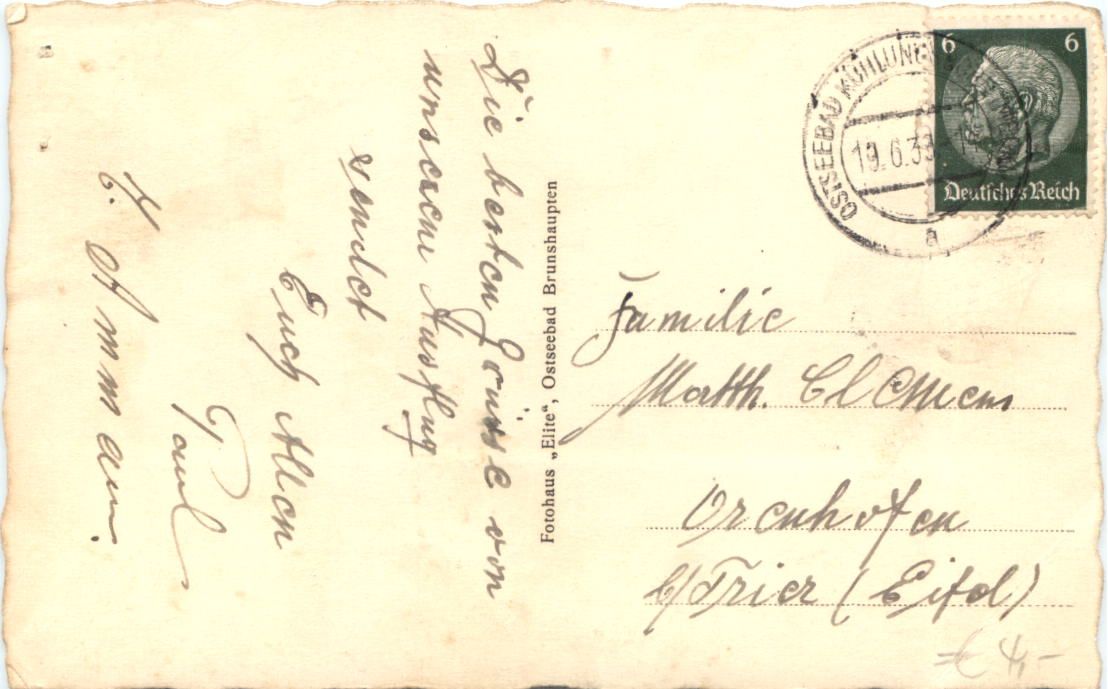 Die besten Grüsse von
unserem Ausflug
sendet
Euch Allen
Paul
Fotohaus „Elite“, Ostseebad Brunshaupten
OSTSEEBAD KÜHLUNGSBORN
19.6.39
a
6 6
Deutsches Reich
Familie
Matth. Clemens
Orenhofen
b/Trier (Eifel)
€ 4,-